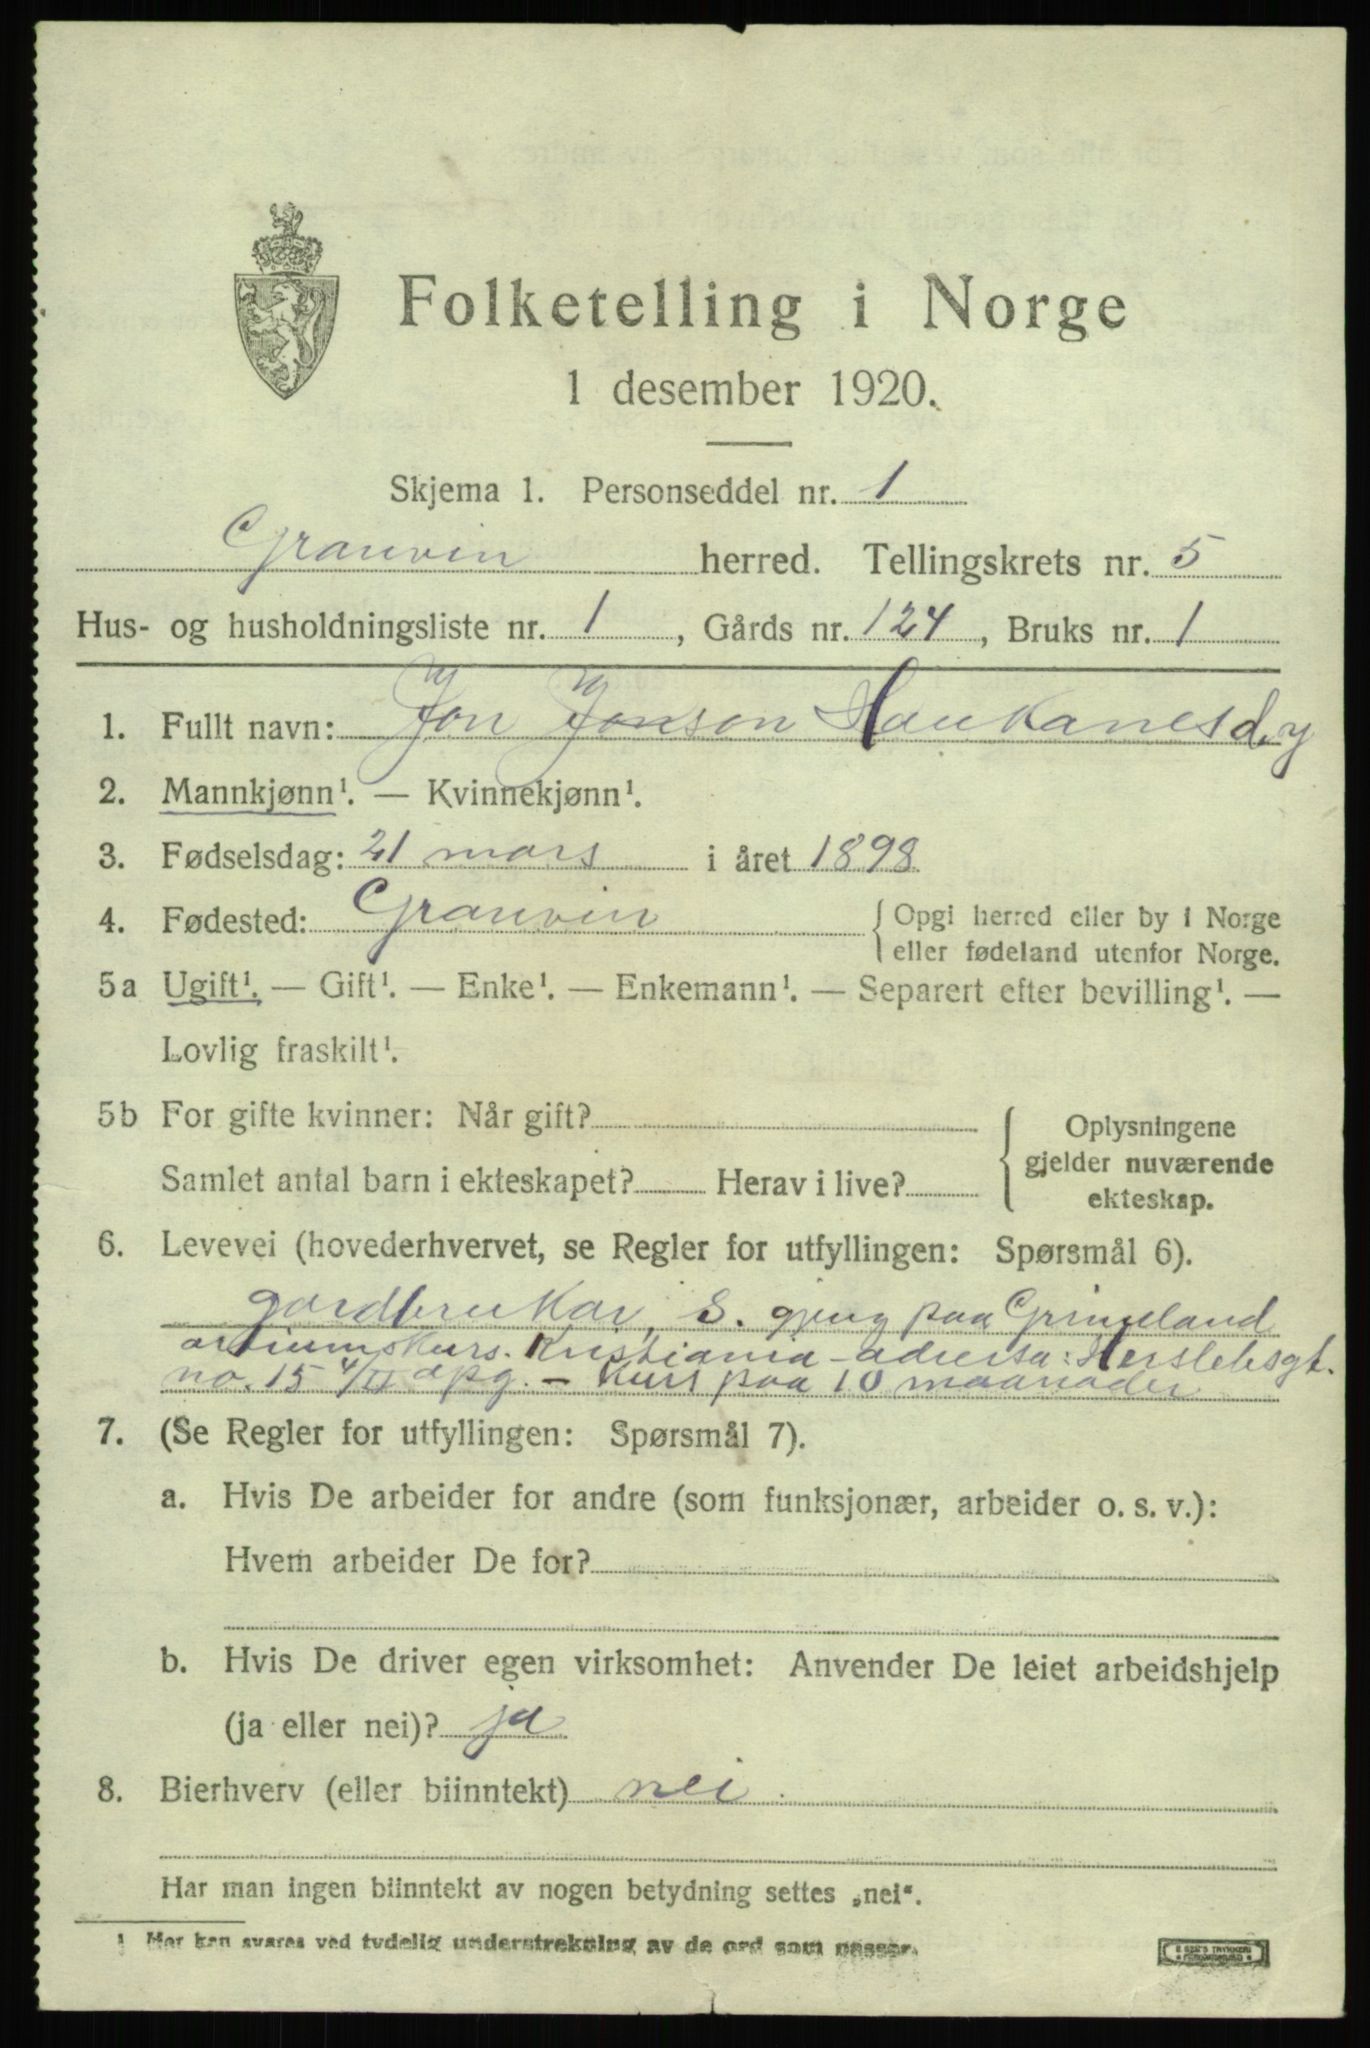 Folketelling i Norge
1 desember 1920.
Skjema 1. Personseddel nr. 1
Granvin herred. Tellingskrets nr. 5
Hus- og husholdningsliste nr. 1, Gårds nr. 124, Bruks nr. 1
1. Fullt navn: Jon Jonson Haukanes d.y
2. Mannkjønn¹. — Kvinnekjønn¹.
3. Fødselsdag: 21 mars i året 1898
4. Fødested: Granvin { Opgi herred eller by i Norge
eller fødeland utenfor Norge.
5a Ugift¹. — Gift¹. — Enke¹. — Enkemann¹. — Separert efter bevilling¹. —
Lovlig fraskilt¹.
5b For gifte kvinner: Når gift? { Oplysningene
gjelder nuværende
ekteskap.
Samlet antal barn i ekteskapet? Herav i live?
6. Levevei (hovederhvervet, se Regler for utfyllingen: Spørsmål 6).
gardbrukar, S. gjeng paa Grimeland
artiumskurs. Kristiania - adressa: Herslebsgt.
no. 15 4/II opg. - Kurs paa 10 maanader
7. (Se Regler for utfyllingen: Spørsmål 7).
a. Hvis De arbeider for andre (som funksjonær, arbeider o. s. v.):
Hvem arbeider De for?
b. Hvis De driver egen virksomhet: Anvender De leiet arbeidshjelp
(ja eller nei)? ja
8. Bierhverv (eller biinntekt) nei.
Har man ingen biinntekt av nogen betydning settes „nei“.
¹ Her kan svares ved tydelig understrekning av de ord som passer.